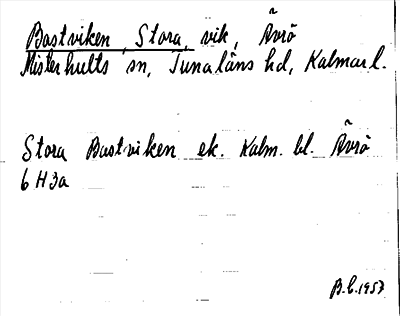 Bastviken, Stora, vik, Ävrö
Misterhults sn, Tunaläns hd, Kalmar l.
Stora Bastviken ek. Kalm. bl. Ävrö
6 H 3a
B.C. 1957